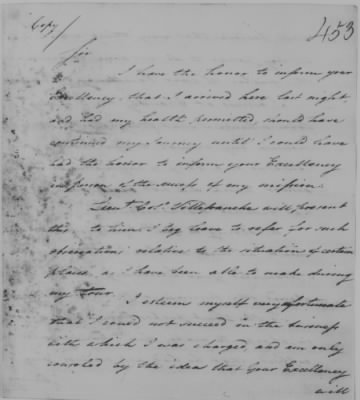 Copy/
453
Sir
I have the honor to inform your
Excellency, that I arrived here last night,
and had my health permitted, should have
continued my Journey until I could have
had the honor to inform your Excellency
in person of the success of my mission.
Lieut Col. Villefranche will present
this to whom I beg leave to refer for such
observations relative to the situation of certain
places as I have been able to made during
my Tour.
I esteem myself very unfortunate
that I could not succeed in the business
with which I was charged, and am only
consoled by the idea that Your Excellency
will